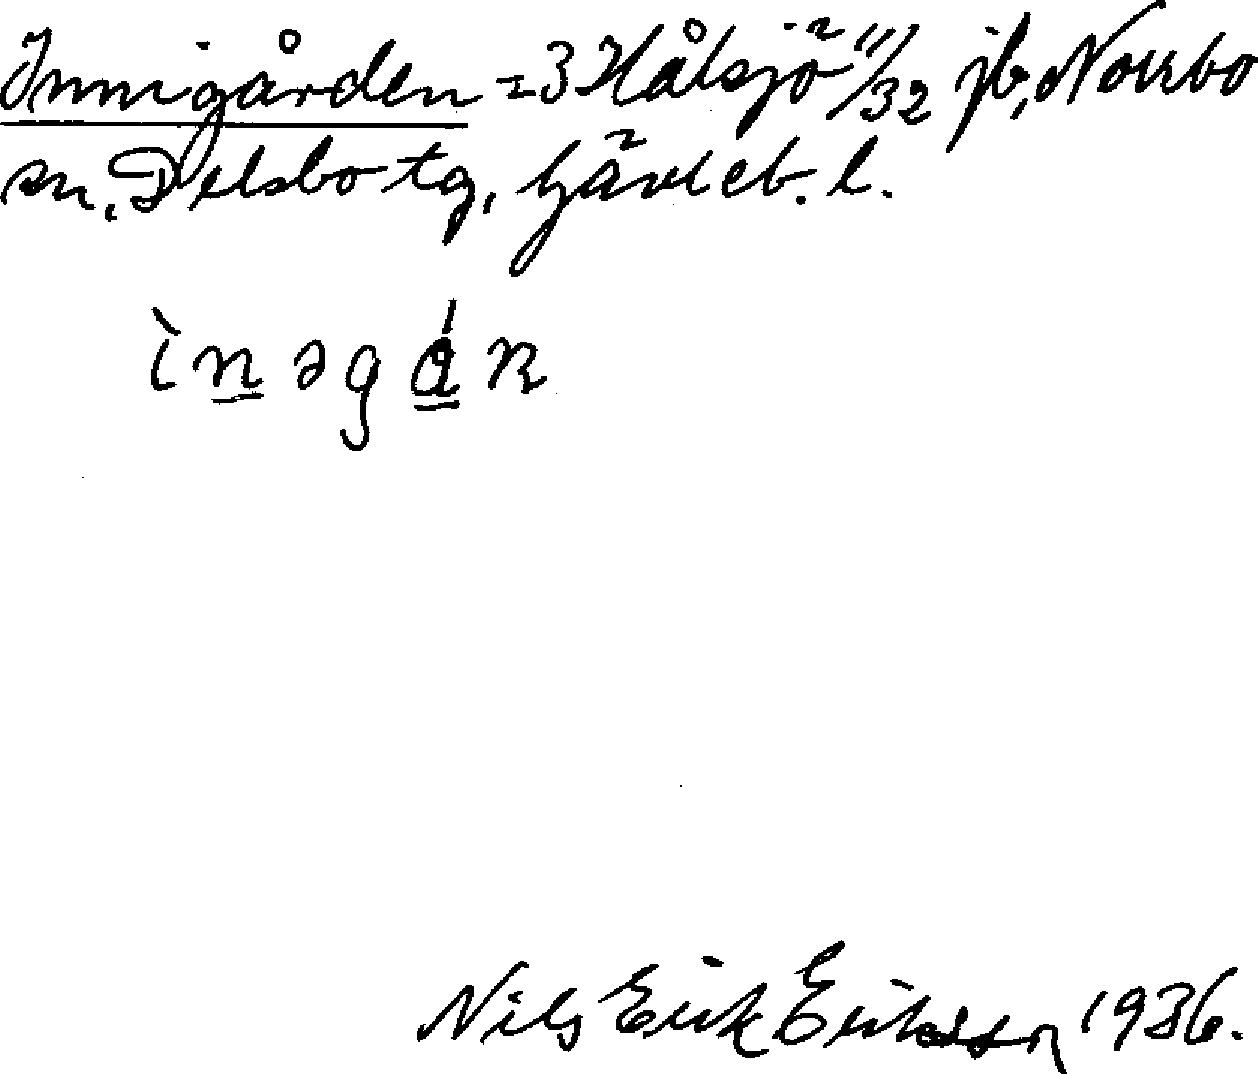 Innigården = 3 Hålsjö 11/32 jb, Norrbo
sn, Delsbo tg, Gävleb. l.
ìnəgá́ɳ
Nils Erik Eriksson 1936.